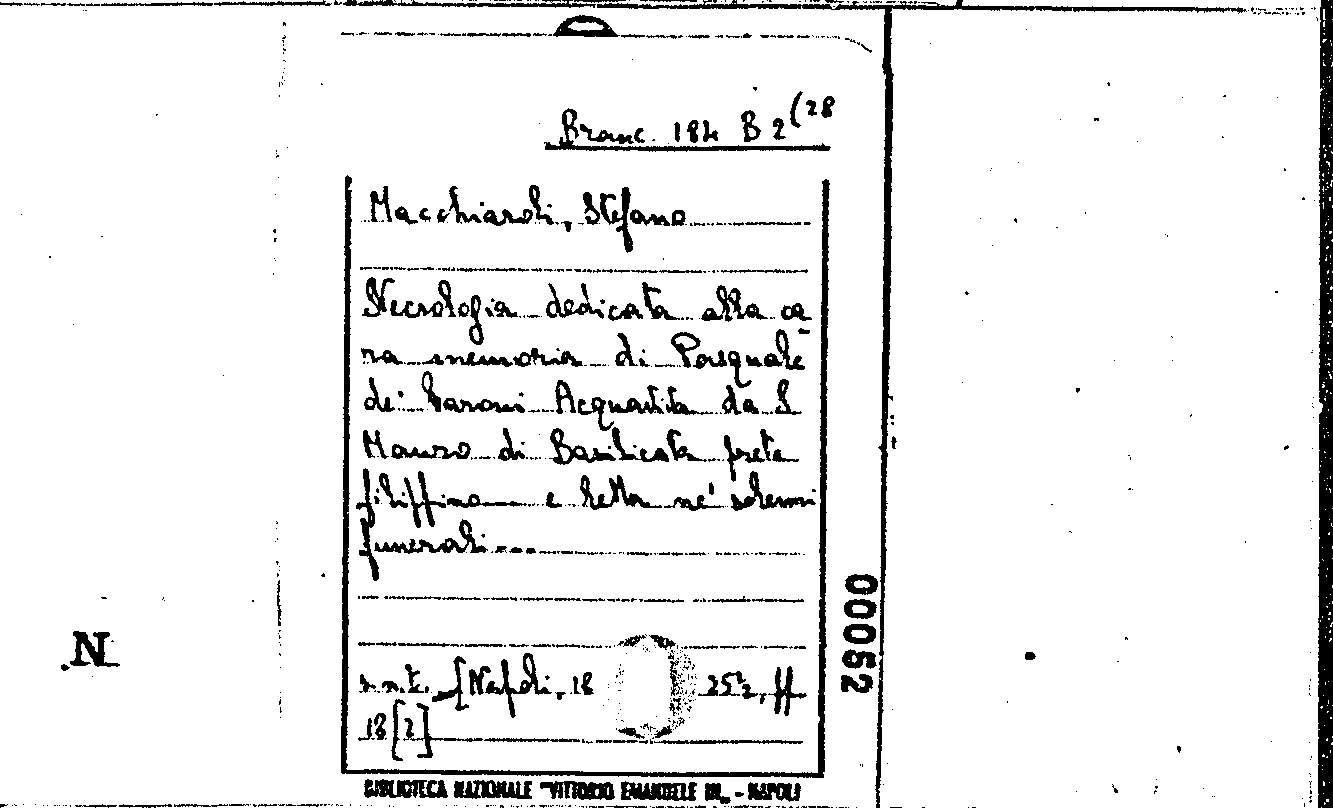 Branc. 184 B 2 (28
Macchiaroli, Stefano
Necrologia dedicata alla ca
ra memoria di Pasquale
de' Baroni Acquavita da S.
Mauro di Basilicata prete
filippino e letta ne' solenni
funerali...
s.n.t. [Napoli, 18 25½, ff
18 [2]
BIBLIOTECA NAZIONALE "VITTORIO EMANUELE III" - NAPOLI
00062
N